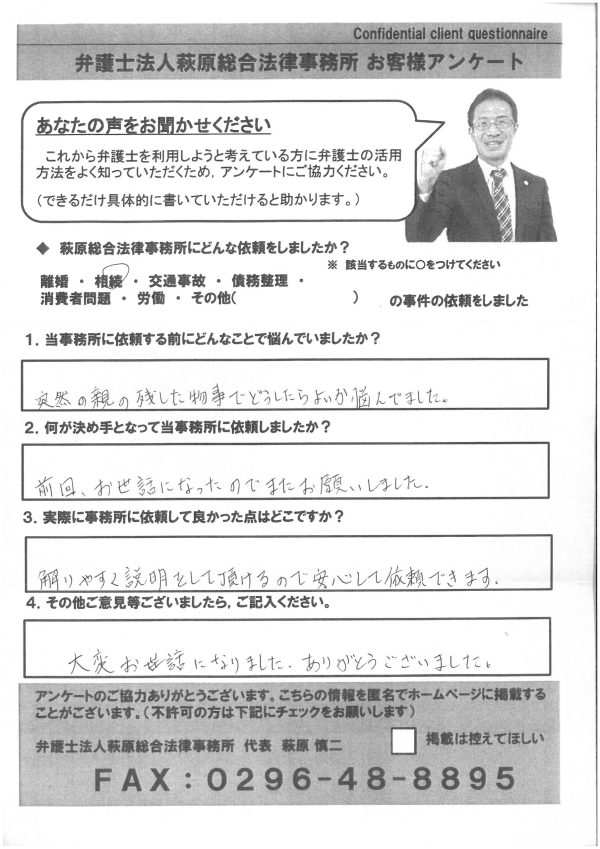 Confidential client questionnaire
弁護士法人萩原総合法律事務所 お客様アンケート
あなたの声をお聞かせください
これから弁護士を利用しようと考えている方に弁護士の活用
方法をよく知っていただくため，アンケートにご協力ください。
（できるだけ具体的に書いていただけると助かります。）
◆ 萩原総合法律事務所にどんな依頼をしましたか？
※ 該当するものに○をつけてください
離婚 ・ 相続 ・ 交通事故 ・ 債務整理 ・
消費者問題 ・ 労働 ・ その他（ ） の事件の依頼をしました
１．当事務所に依頼する前にどんなことで悩んでいましたか？
突然の親の残した物事でどうしたらよいか悩んでました。
２．何が決め手となって当事務所に依頼しましたか？
前回、お世話になったのでまたお願いしました.
３．実際に事務所に依頼して良かった点はどこですか？
解りやすく説明をして頂けるので安心して依頼できます.
４．その他ご意見等ございましたら，ご記入ください。
大変お世話になりました. ありがとうございました。
アンケートのご協力ありがとうございます。こちらの情報を匿名でホームページに掲載する
ことがございます。（不許可の方は下記にチェックをお願いします）
弁護士法人萩原総合法律事務所 代表 萩原 慎二
掲載は控えてほしい
FAX：0296-48-8895